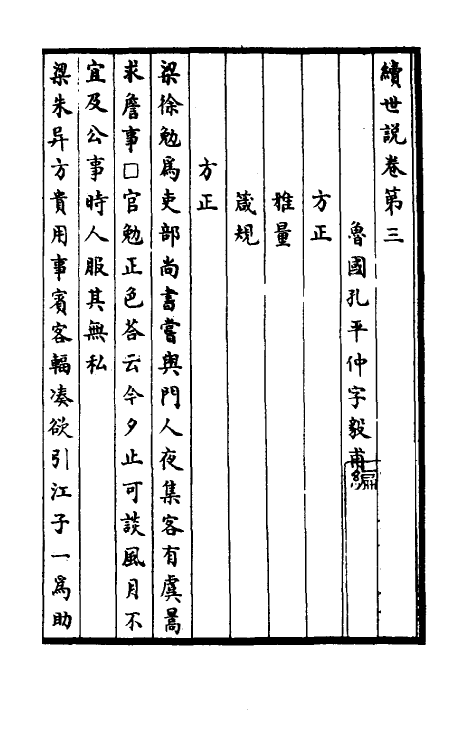 續世說卷第三
魯國孔平仲字毅甫編
方正
雅量
箴規
方正
梁徐勉爲吏部尚書嘗與門人夜集客有虞暠
求詹事□官勉正色荅云今夕止可談風月不
宜及公事時人服其無私
梁朱异方貴用事賓客輻湊欲引江子一爲助